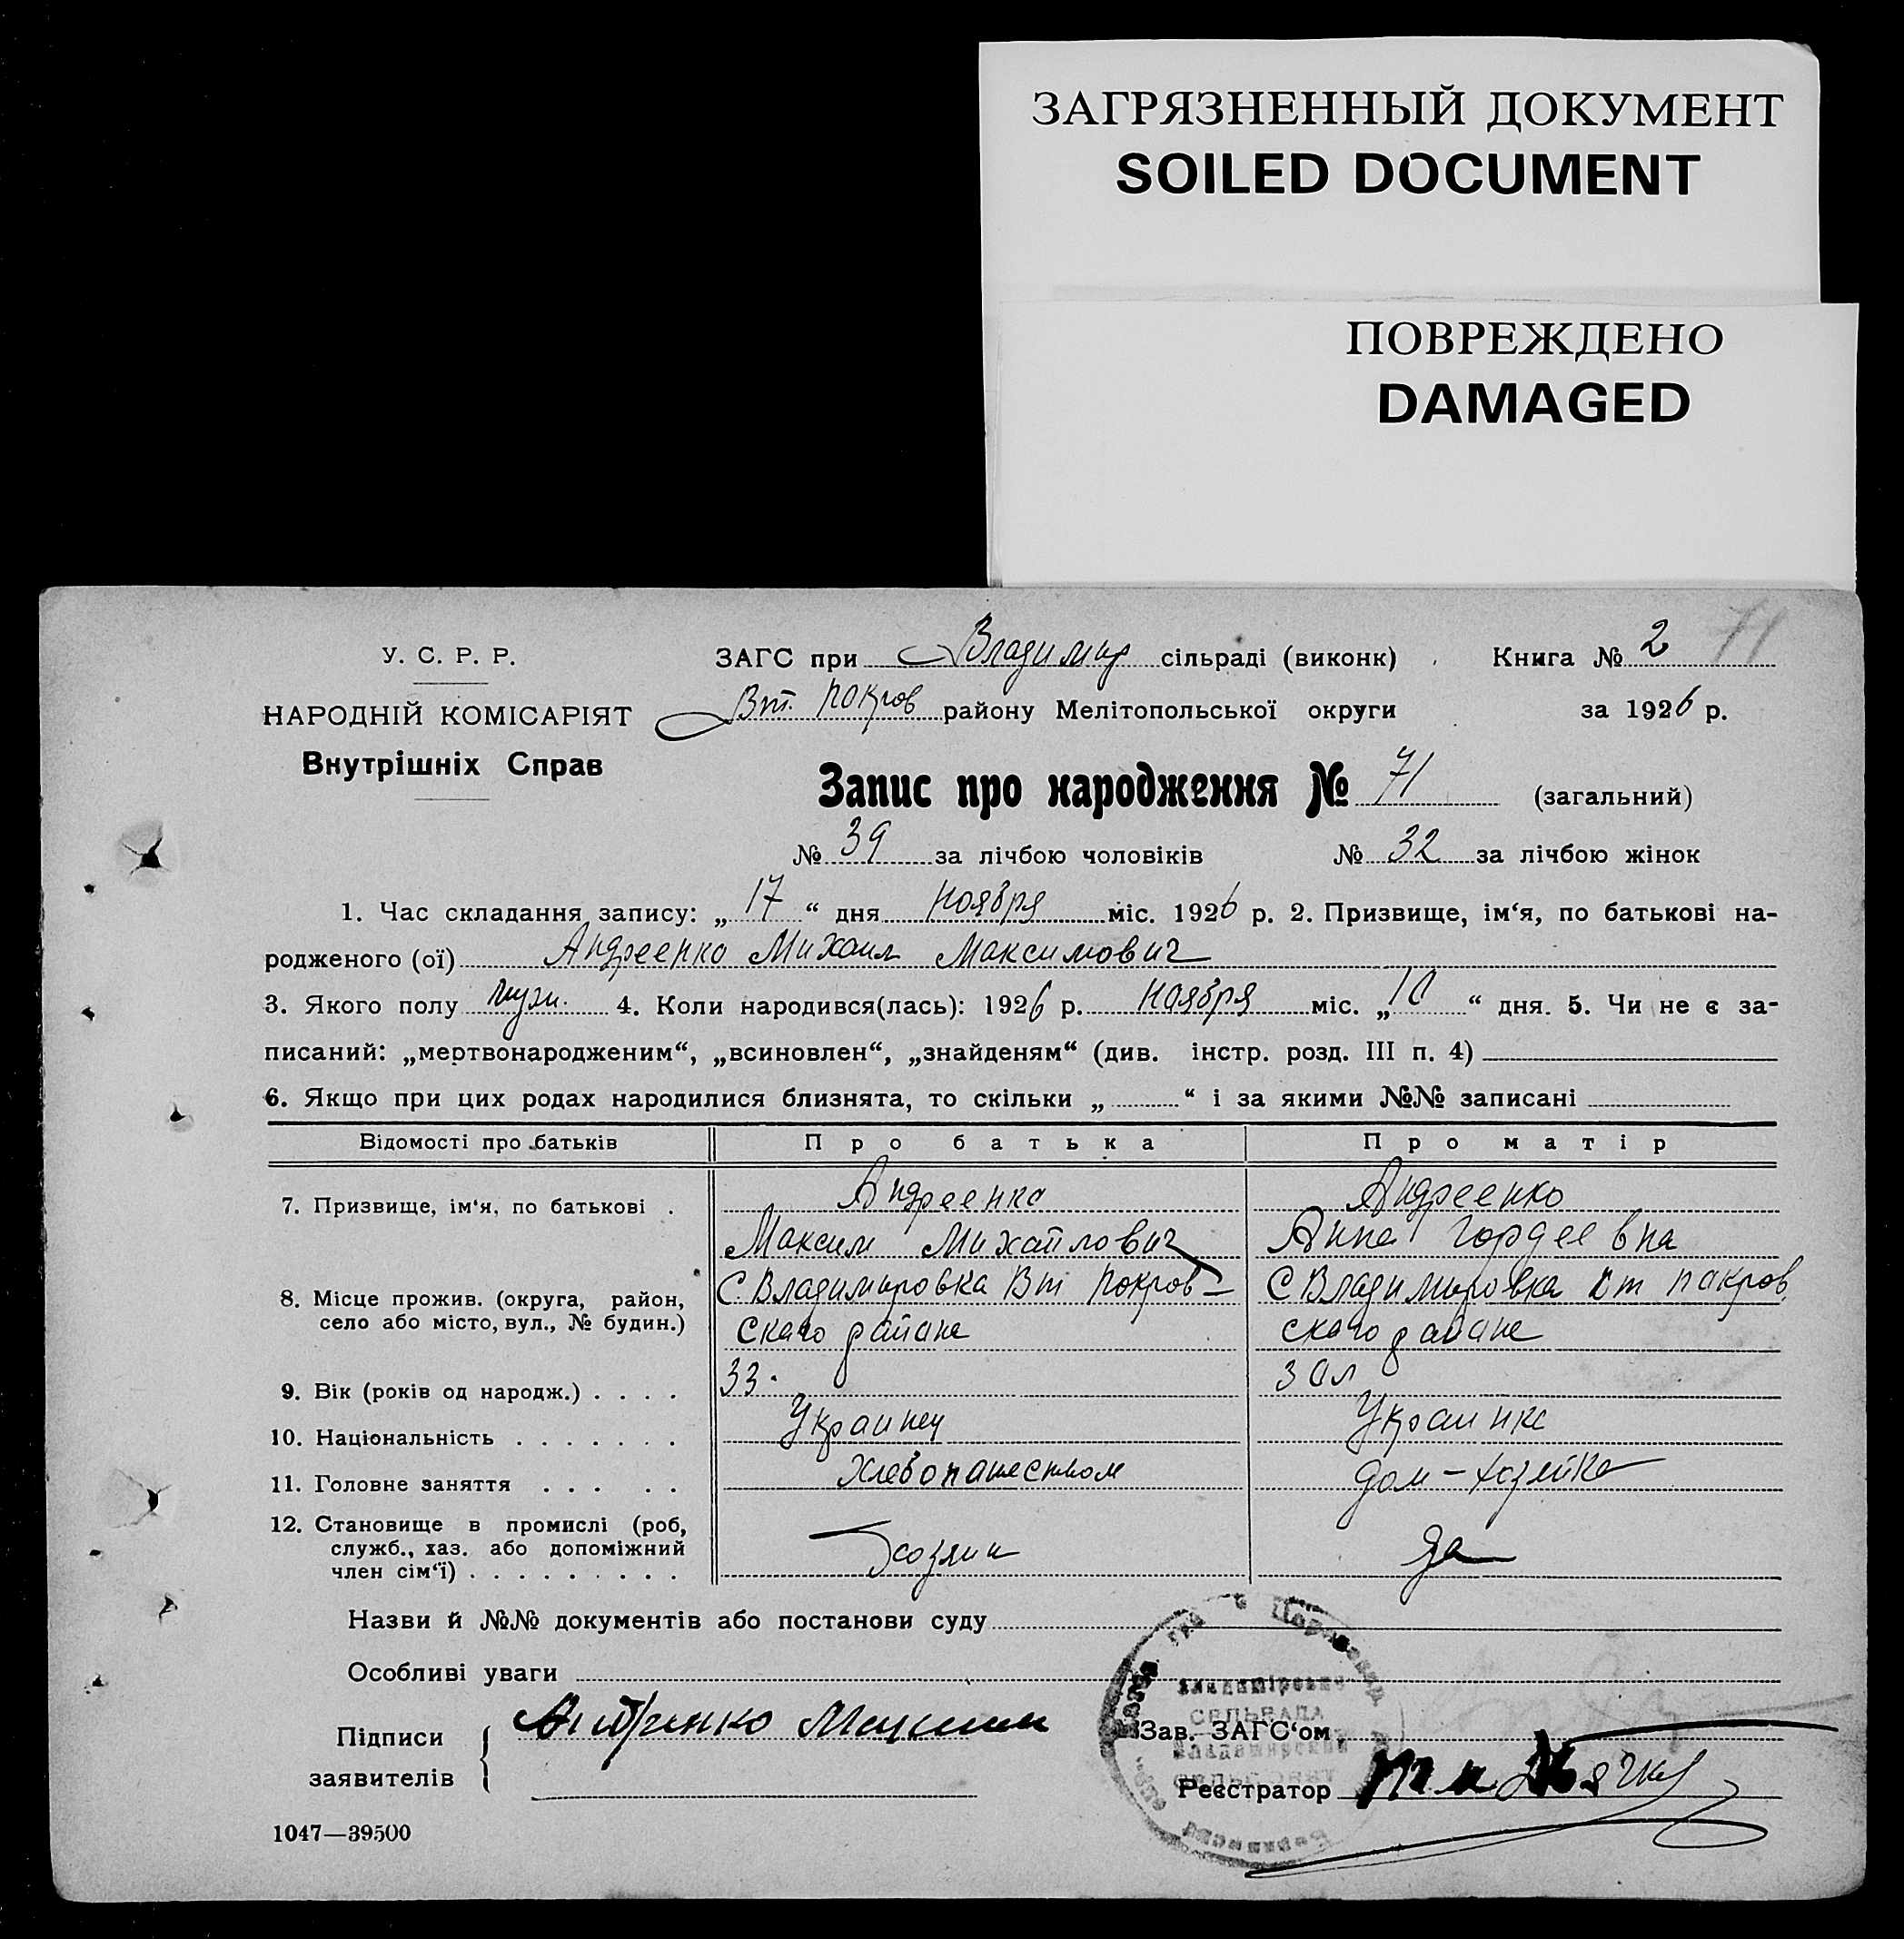 ЗАГРЯЗНЕННЫЙ ДОКУМЕНТ
SOILED DOCUMENT
ПОВРЕЖДЕНО
DAMAGED
У. С. Р. Р.
НАРОДНІЙ КОМІСАРІЯТ
Внутрішніх Справ
ЗАГС при Владимир сільраді (виконк) Книга № 2 71
Вт. Покров району Мелітопольської округи за 1926 р.
Запис про народження № 71 (загальний)
№ 39 за лічбою чоловіків № 32 за лічбою жінок
1. Час складання запису: „ 17 “ дня ноября міс. 1926 р. 2. Призвище, ім‘я, по батькові на-
родженого (ої) Андреенко Михаил Максимович
3. Якого полу муж. 4. Коли народився(лась): 1926 р. ноября міс. „ 10 “ дня. 5. Чи не є за-
писаний: „мертвонародженим“, „всиновлен“, „знайденям“ (див. інстр. розд. III п. 4)
6. Якщо при цих родах народилися близнята, то скільки „ “ і за якими №№ записані
Відомості про батьків Про батька Про матір
7. Призвище, ім‘я, по батькові . Андреенко Андреенко
Максим Михайлович Анна Гордеевна
8. Місце прожив. (округа, район, С. Владимировка Вт Покров- С Владимировка Вт Покров
село або місто, вул., № будин.) скаго района скаго района
9. Вік (років од народж.) . . . . 33. 30 л
10. Національність . . . . . . . Украинец Украинка
11. Головне заняття . . . . . Хлебопашеством дом-хозяйка
12. Становище в промислі (роб,
служб., хаз. або допоміжний Хозяин да
член сім‘ї) . . . . . . . . .
Назви й №№ документів або постанови суду
Особливі уваги
Підписи
заявителів
Андренко Максим
Зав. ЗАГС‘ом
Реєстратор
СЕЛЬРАДА
1047—39500